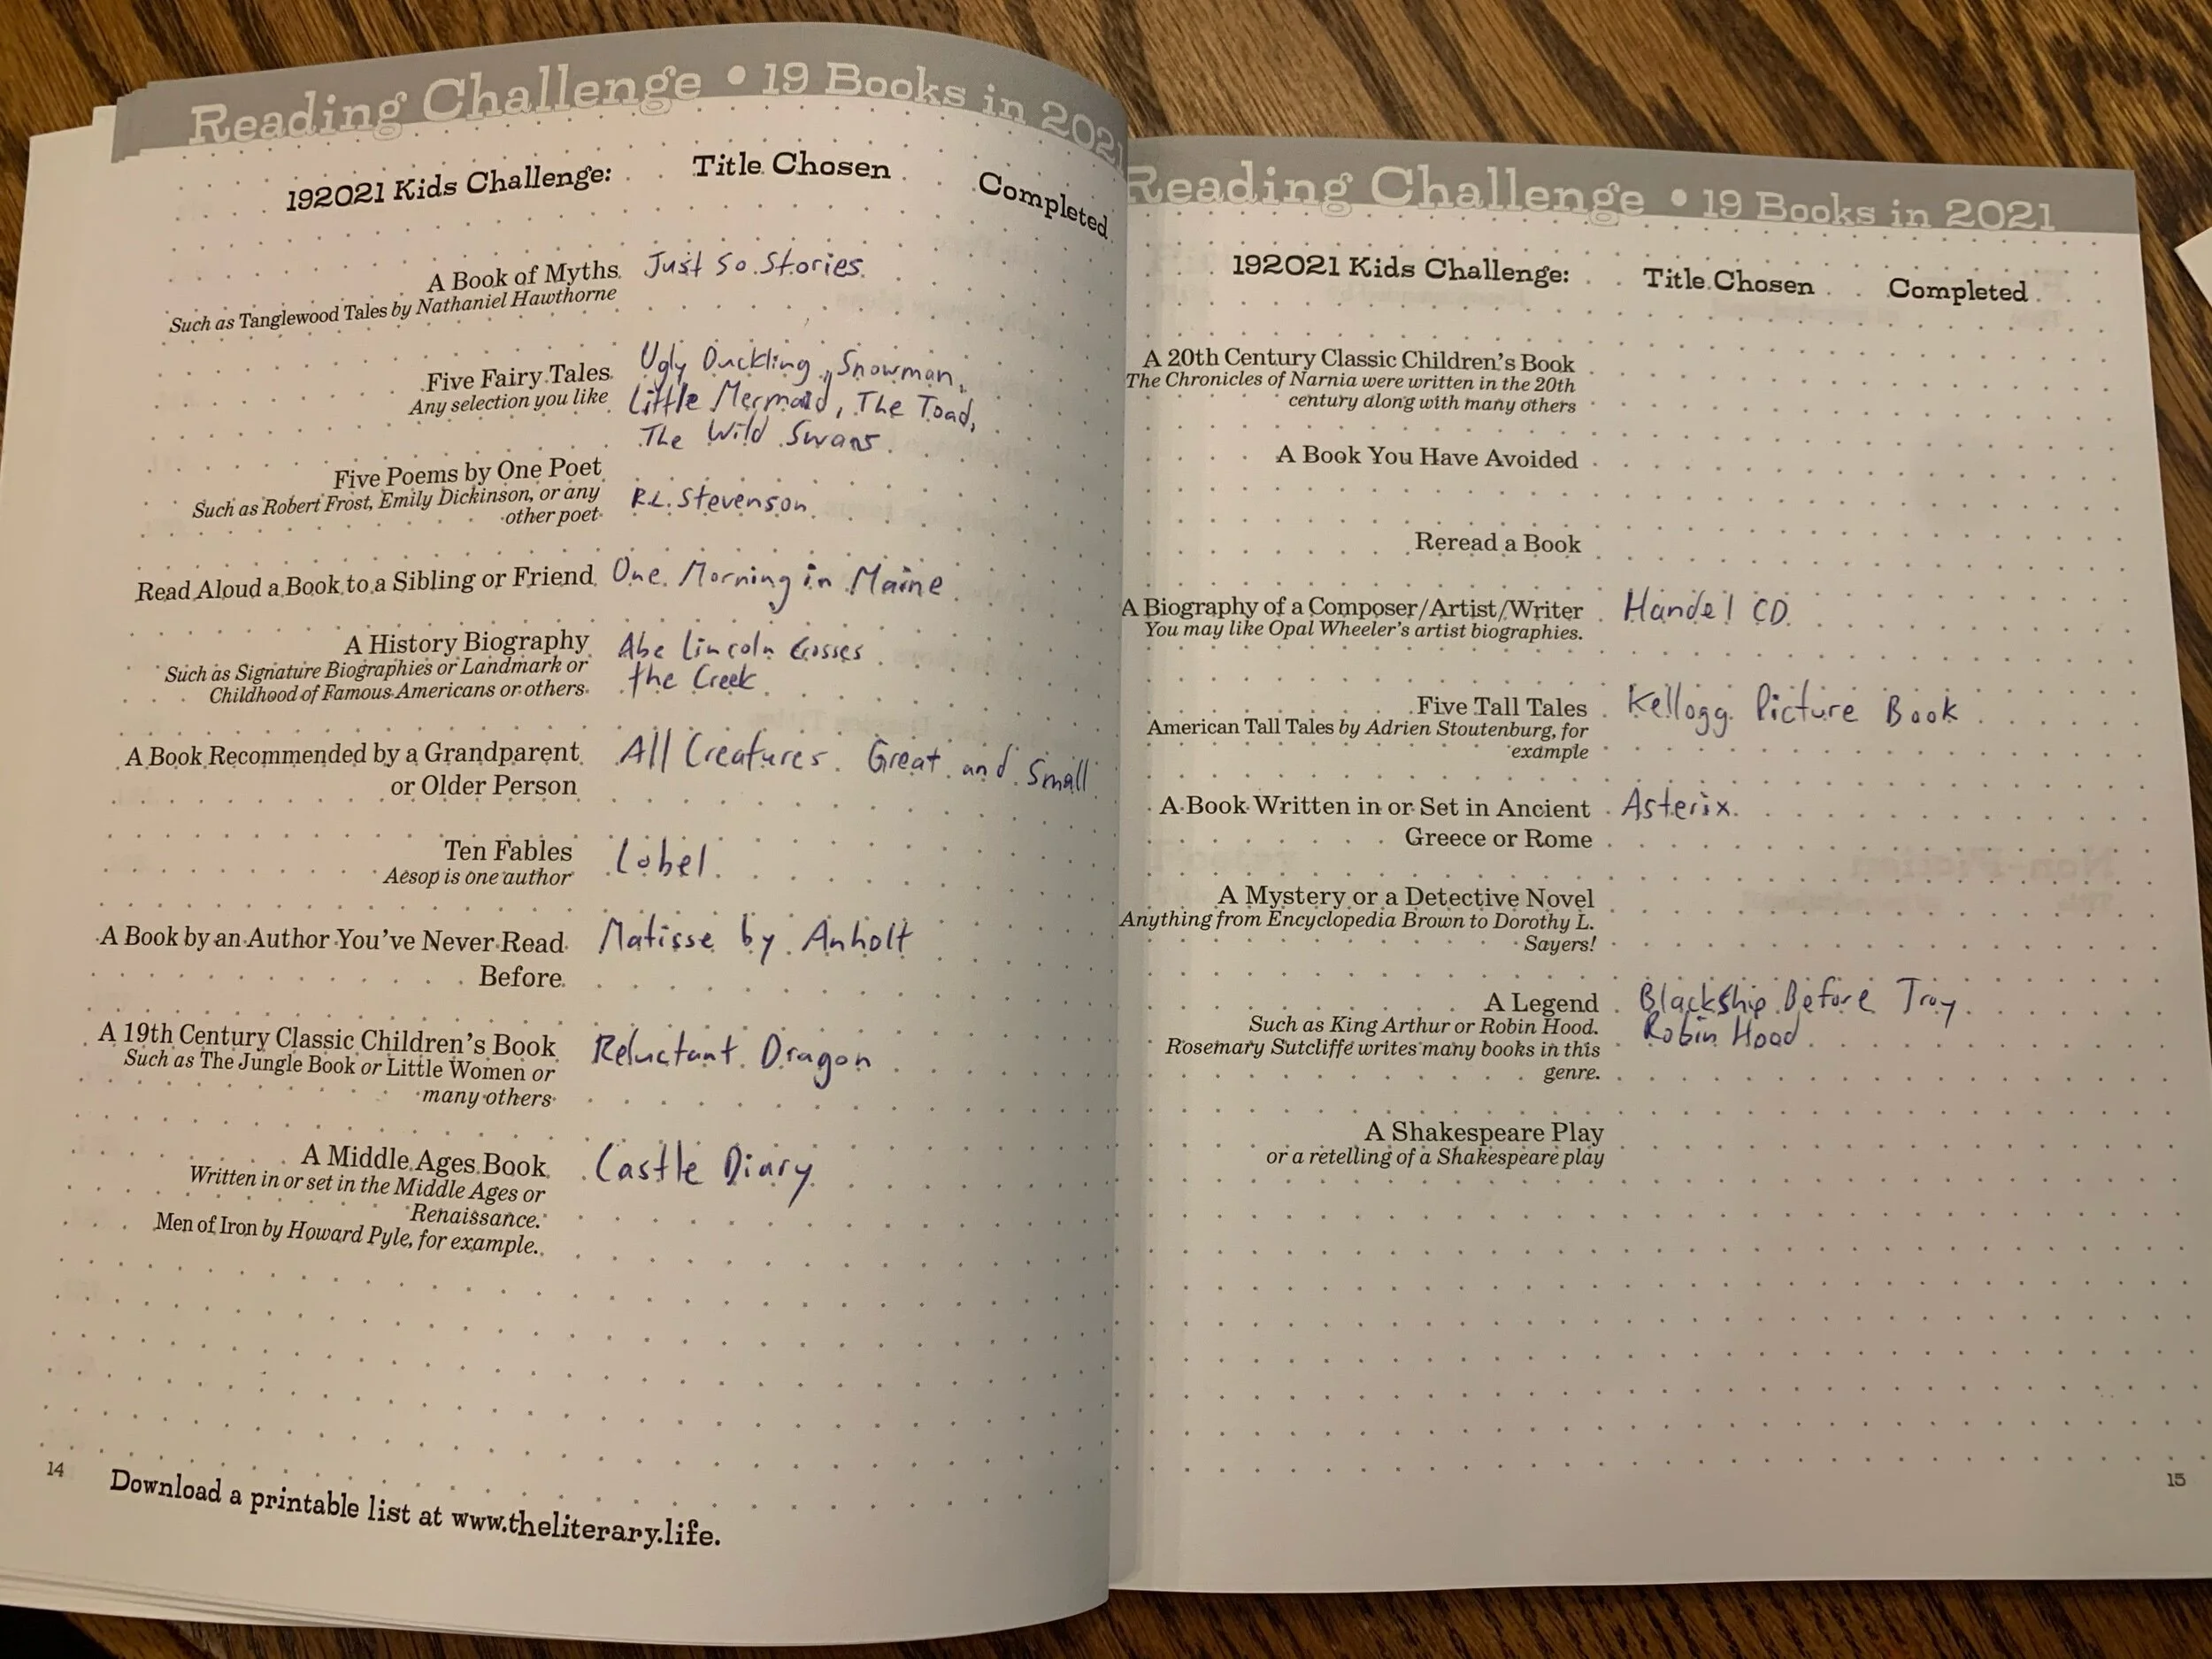 Reading Challenge • 19 Books in 2021
192021 Kids Challenge: Title Chosen Completed
A Book of Myths Just So Stories
Such as Tanglewood Tales by Nathaniel Hawthorne
Five Fairy Tales Ugly Duckling, Snowman,
Any selection you like Little Mermaid, The Toad,
The Wild Swans
Five Poems by One Poet
Such as Robert Frost, Emily Dickinson, or any R.L. Stevenson
other poet
Read Aloud a Book to a Sibling or Friend One Morning in Maine
A History Biography Abe Lincoln Crosses
Such as Signature Biographies or Landmark or the Creek
Childhood of Famous Americans or others.
A Book Recommended by a Grandparent All Creatures Great and Small
or Older Person
Ten Fables Lobel
Aesop is one author
A Book by an Author You've Never Read Matisse by Anholt
Before
A 19th Century Classic Children's Book Reluctant Dragon
Such as The Jungle Book or Little Women or
many others
A Middle Ages Book Castle Diary
Written in or set in the Middle Ages or
Renaissance.
Men of Iron by Howard Pyle, for example.
14
Download a printable list at www.theliterary.life.
Reading Challenge • 19 Books in 2021
192021 Kids Challenge: Title Chosen Completed
A 20th Century Classic Children's Book
The Chronicles of Narnia were written in the 20th
century along with many others
A Book You Have Avoided
Reread a Book
A Biography of a Composer/Artist/Writer Handel CD
You may like Opal Wheeler's artist biographies.
Five Tall Tales Kellogg Picture Book
American Tall Tales by Adrien Stoutenburg, for
example
A Book Written in or Set in Ancient Asterix
Greece or Rome
A Mystery or a Detective Novel
Anything from Encyclopedia Brown to Dorothy L.
Sayers!
A Legend Blackship Before Troy
Such as King Arthur or Robin Hood. Robin Hood
Rosemary Sutcliffe writes many books in this
genre.
A Shakespeare Play
or a retelling of a Shakespeare play
15